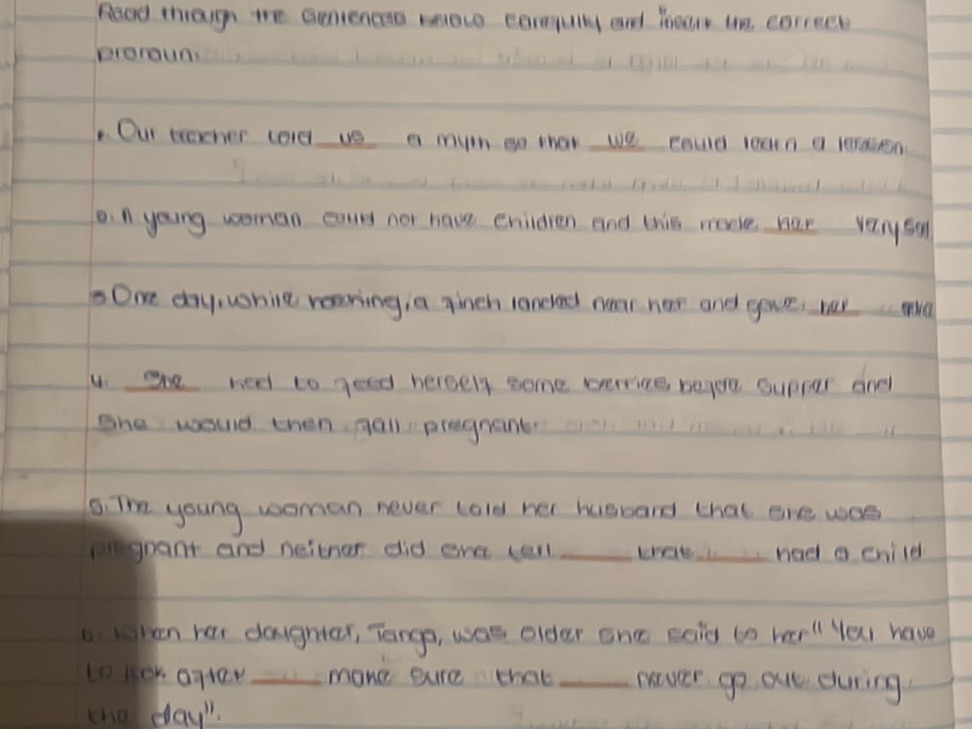 Read through the sentences below carefully and insert the correct
pronoun.
1. Our teacher told us a myth so that we could learn a lesson
2. A young woman could not have children and this made her very sad
3 One day, while morning, a finch landed near her and gave her
4. She had to feed herself some berries before supper and
she would then fall pregnant
5. The young woman never told her husband that she was
pregnant and neither did she tell ____ that ____ had a child
6. When her daughter, Tanga, was older she said to her "You have
to look after ____ make sure that ____ never go out during
the day".